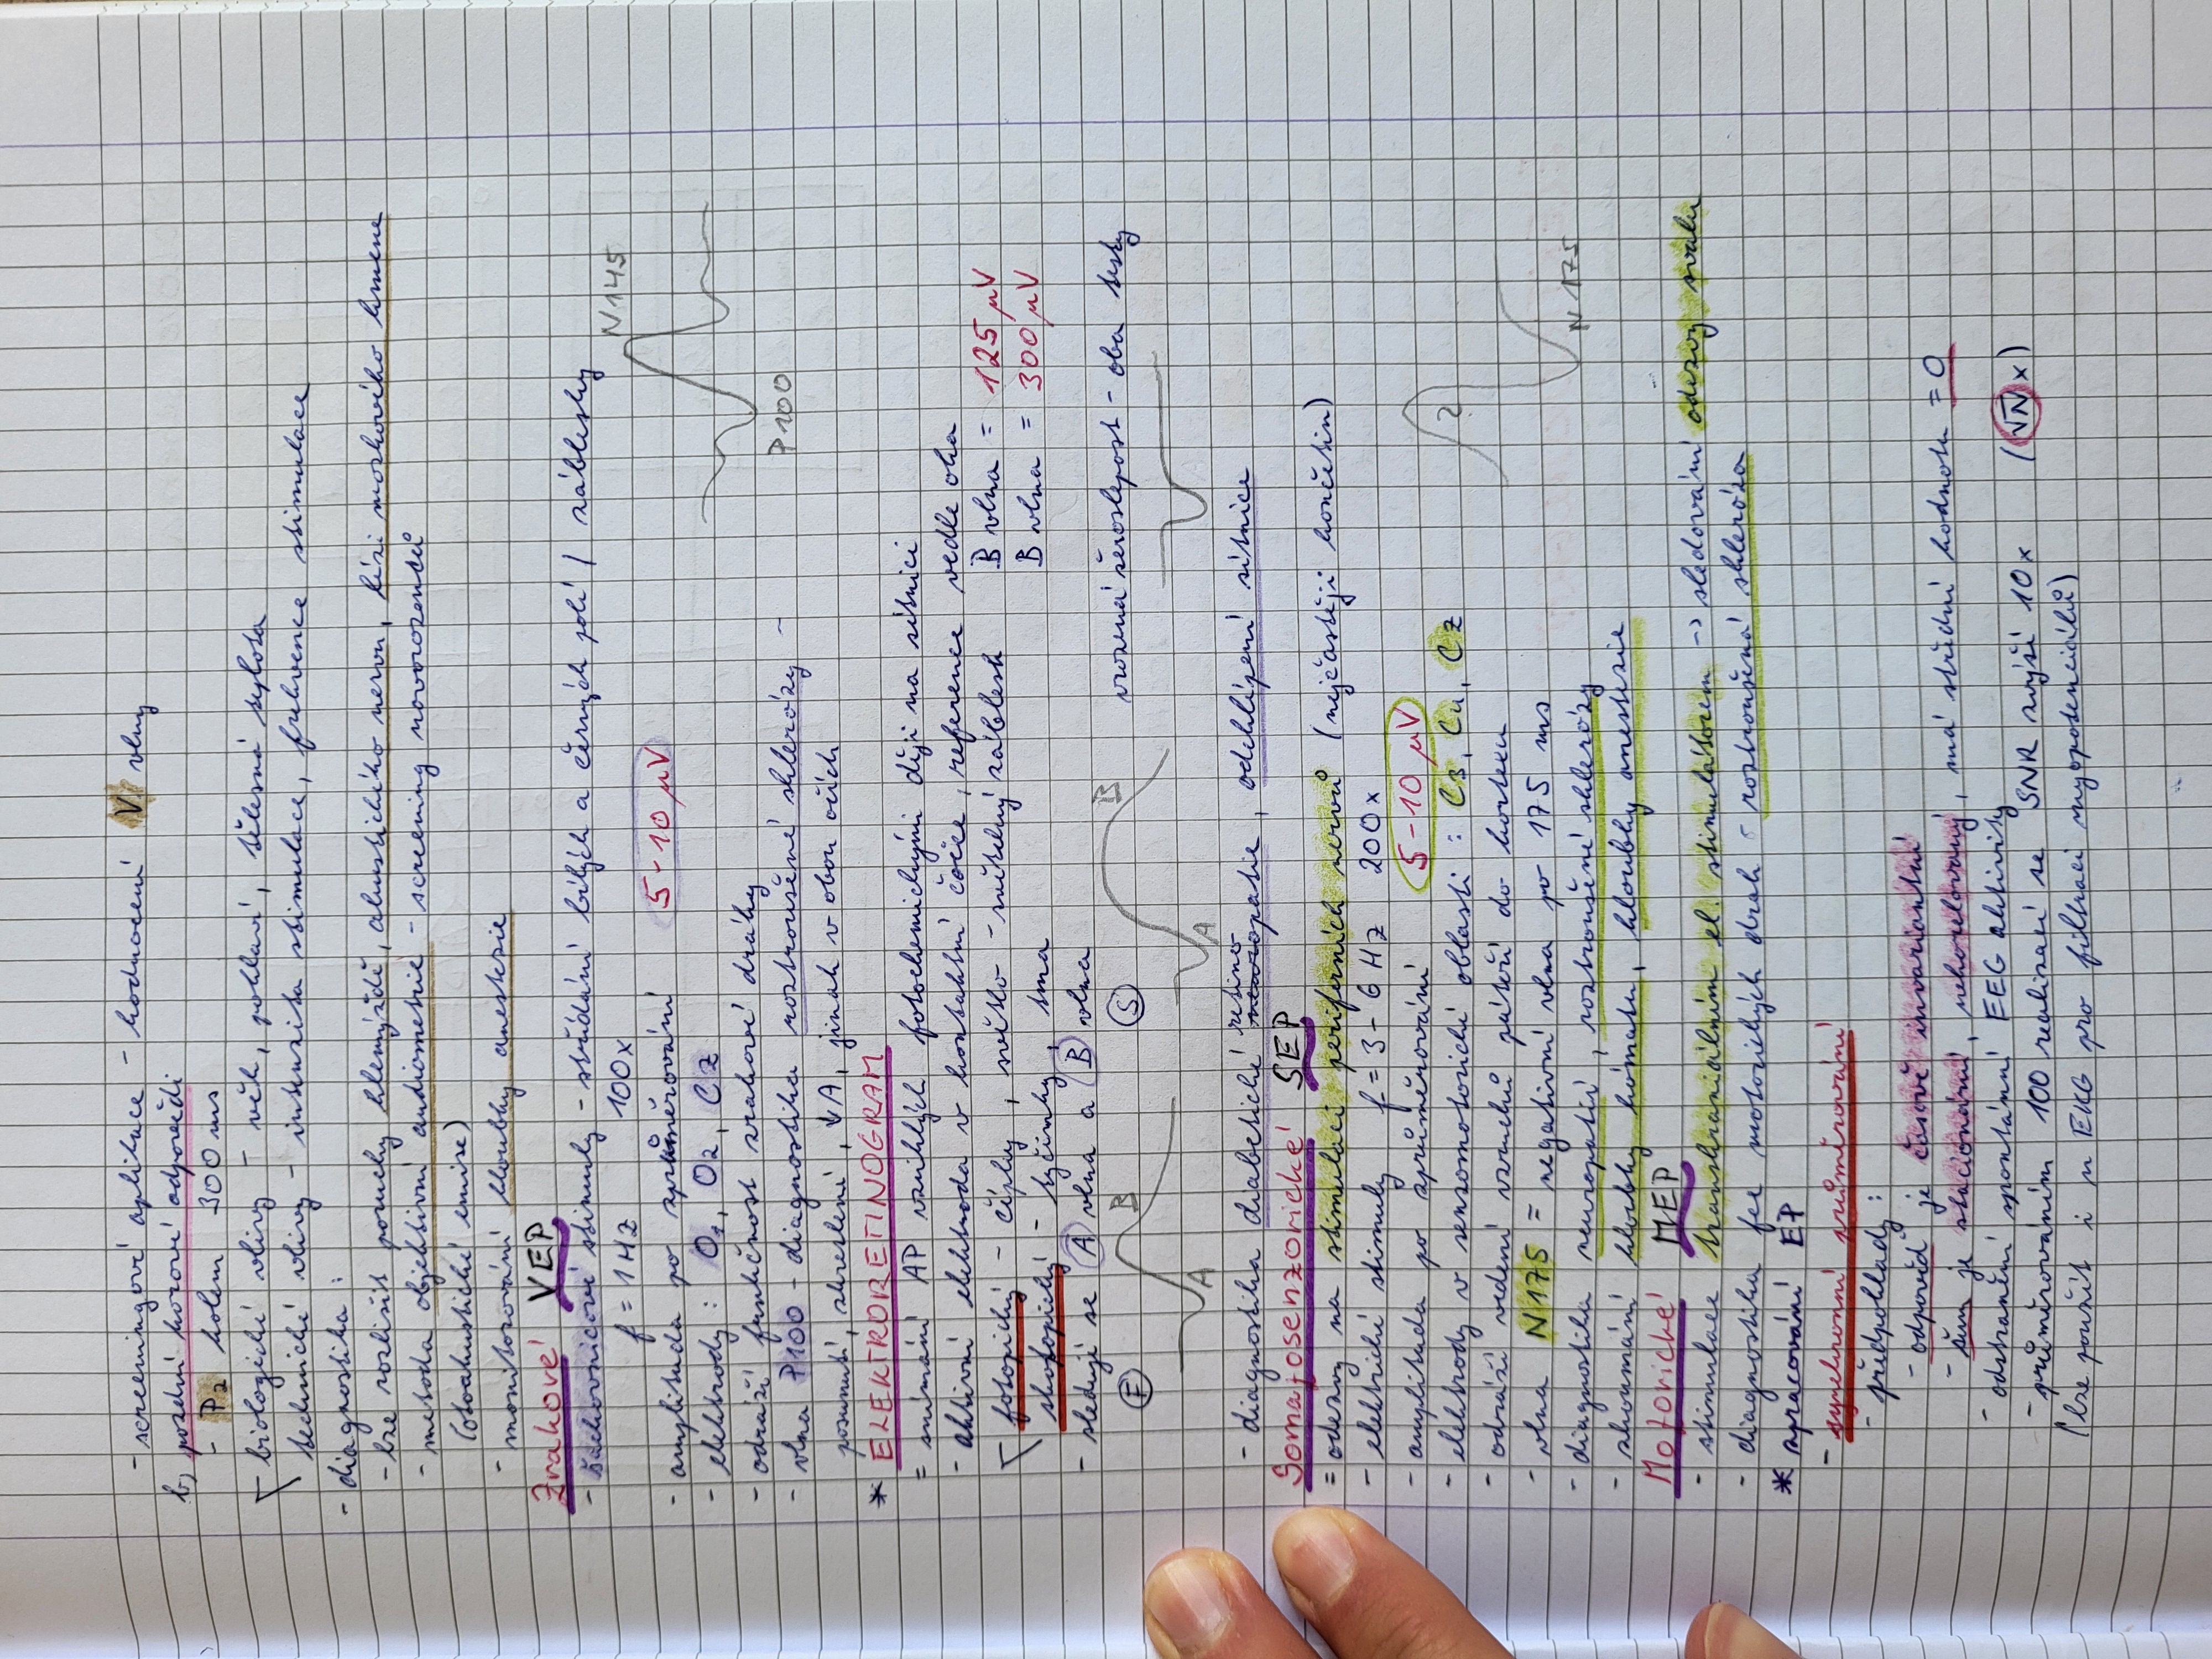 - screeningové aplikace - hodnocení V. vlny
b) pozdní korové odpovědi
- P2 kolem 300 ms
- biologické vlivy - věk, pohlaví, tělesná teplota
technické vlivy - intenzita stimulace, frekvence stimulace
- diagnostika :
- lze rozlišit poruchy hlemýždě, akustického nervu, lézi mozkového kmene
- metoda objektivní audiometrie - screening novorozenců
(otoakustické emise)
- monitorování hloubky anestezie
Zrakové VEP
- šachovnicové stimuly - střídání bílých a černých polí / záblesky
f = 1 Hz 100x
N145
- amplituda po zprůměrování 5-10 µV
- elektrody : O1, O2, CZ
- odráží funkčnost zrakové dráhy
P100
- vlna P100 - diagnostika roztroušené sklerózy -
posunutí, zkreslení, ↓A, jinak v obou očích
* ELEKTRORETINOGRAM
= snímání AP vzniklých fotochemickými ději na sítnici
- aktivní elektroda v kontaktní čočce, reference vedle oka
fotopický - čípky, světlo - světelný záblesk B vlna = 125 µV
skotopický - tyčinky, tma B vlna = 300 µV
- sleduji se A vlna a B vlna
F B A S B A vrozená šeroslepost - oba testy
- diagnostika diabetické retinopatie, odchlípení sítnice
Somatosenzorické SEP
= odezvy na stimulaci periferních nervů (nejčastěji končetin)
- elektrické stimuly f = 3 - 6 Hz 200x
- amplituda po zprůměrování 5-10 µV
- elektrody v senzomotorické oblasti : C3, C4, CZ
?
- odráží vedení vzruchů páteří do kortexu
- vlna N175 = negativní vlna po 175 ms
N175
- diagnostika neuropatií, roztroušené sklerózy
- zkoumání hloubky kómatu, hloubky anestezie
Motorické MEP
- stimulace transkraniálním el. stimulátorem -> sledování odezvy svalu
- diagnostika fce motorických drah - roztroušená skleróza
* zpracování EP
- synchronní průměrování
- předpoklady :
- odpověď je časově invariantní
- šum je stacionární, nekorelovaný, má střední hodnotu = 0
- odstranění spontánní EEG aktivity
- průměrováním 100 realizací se SNR zvýší 10x (√N x)
(lze použít i u EKG pro filtraci myopotenciálů)